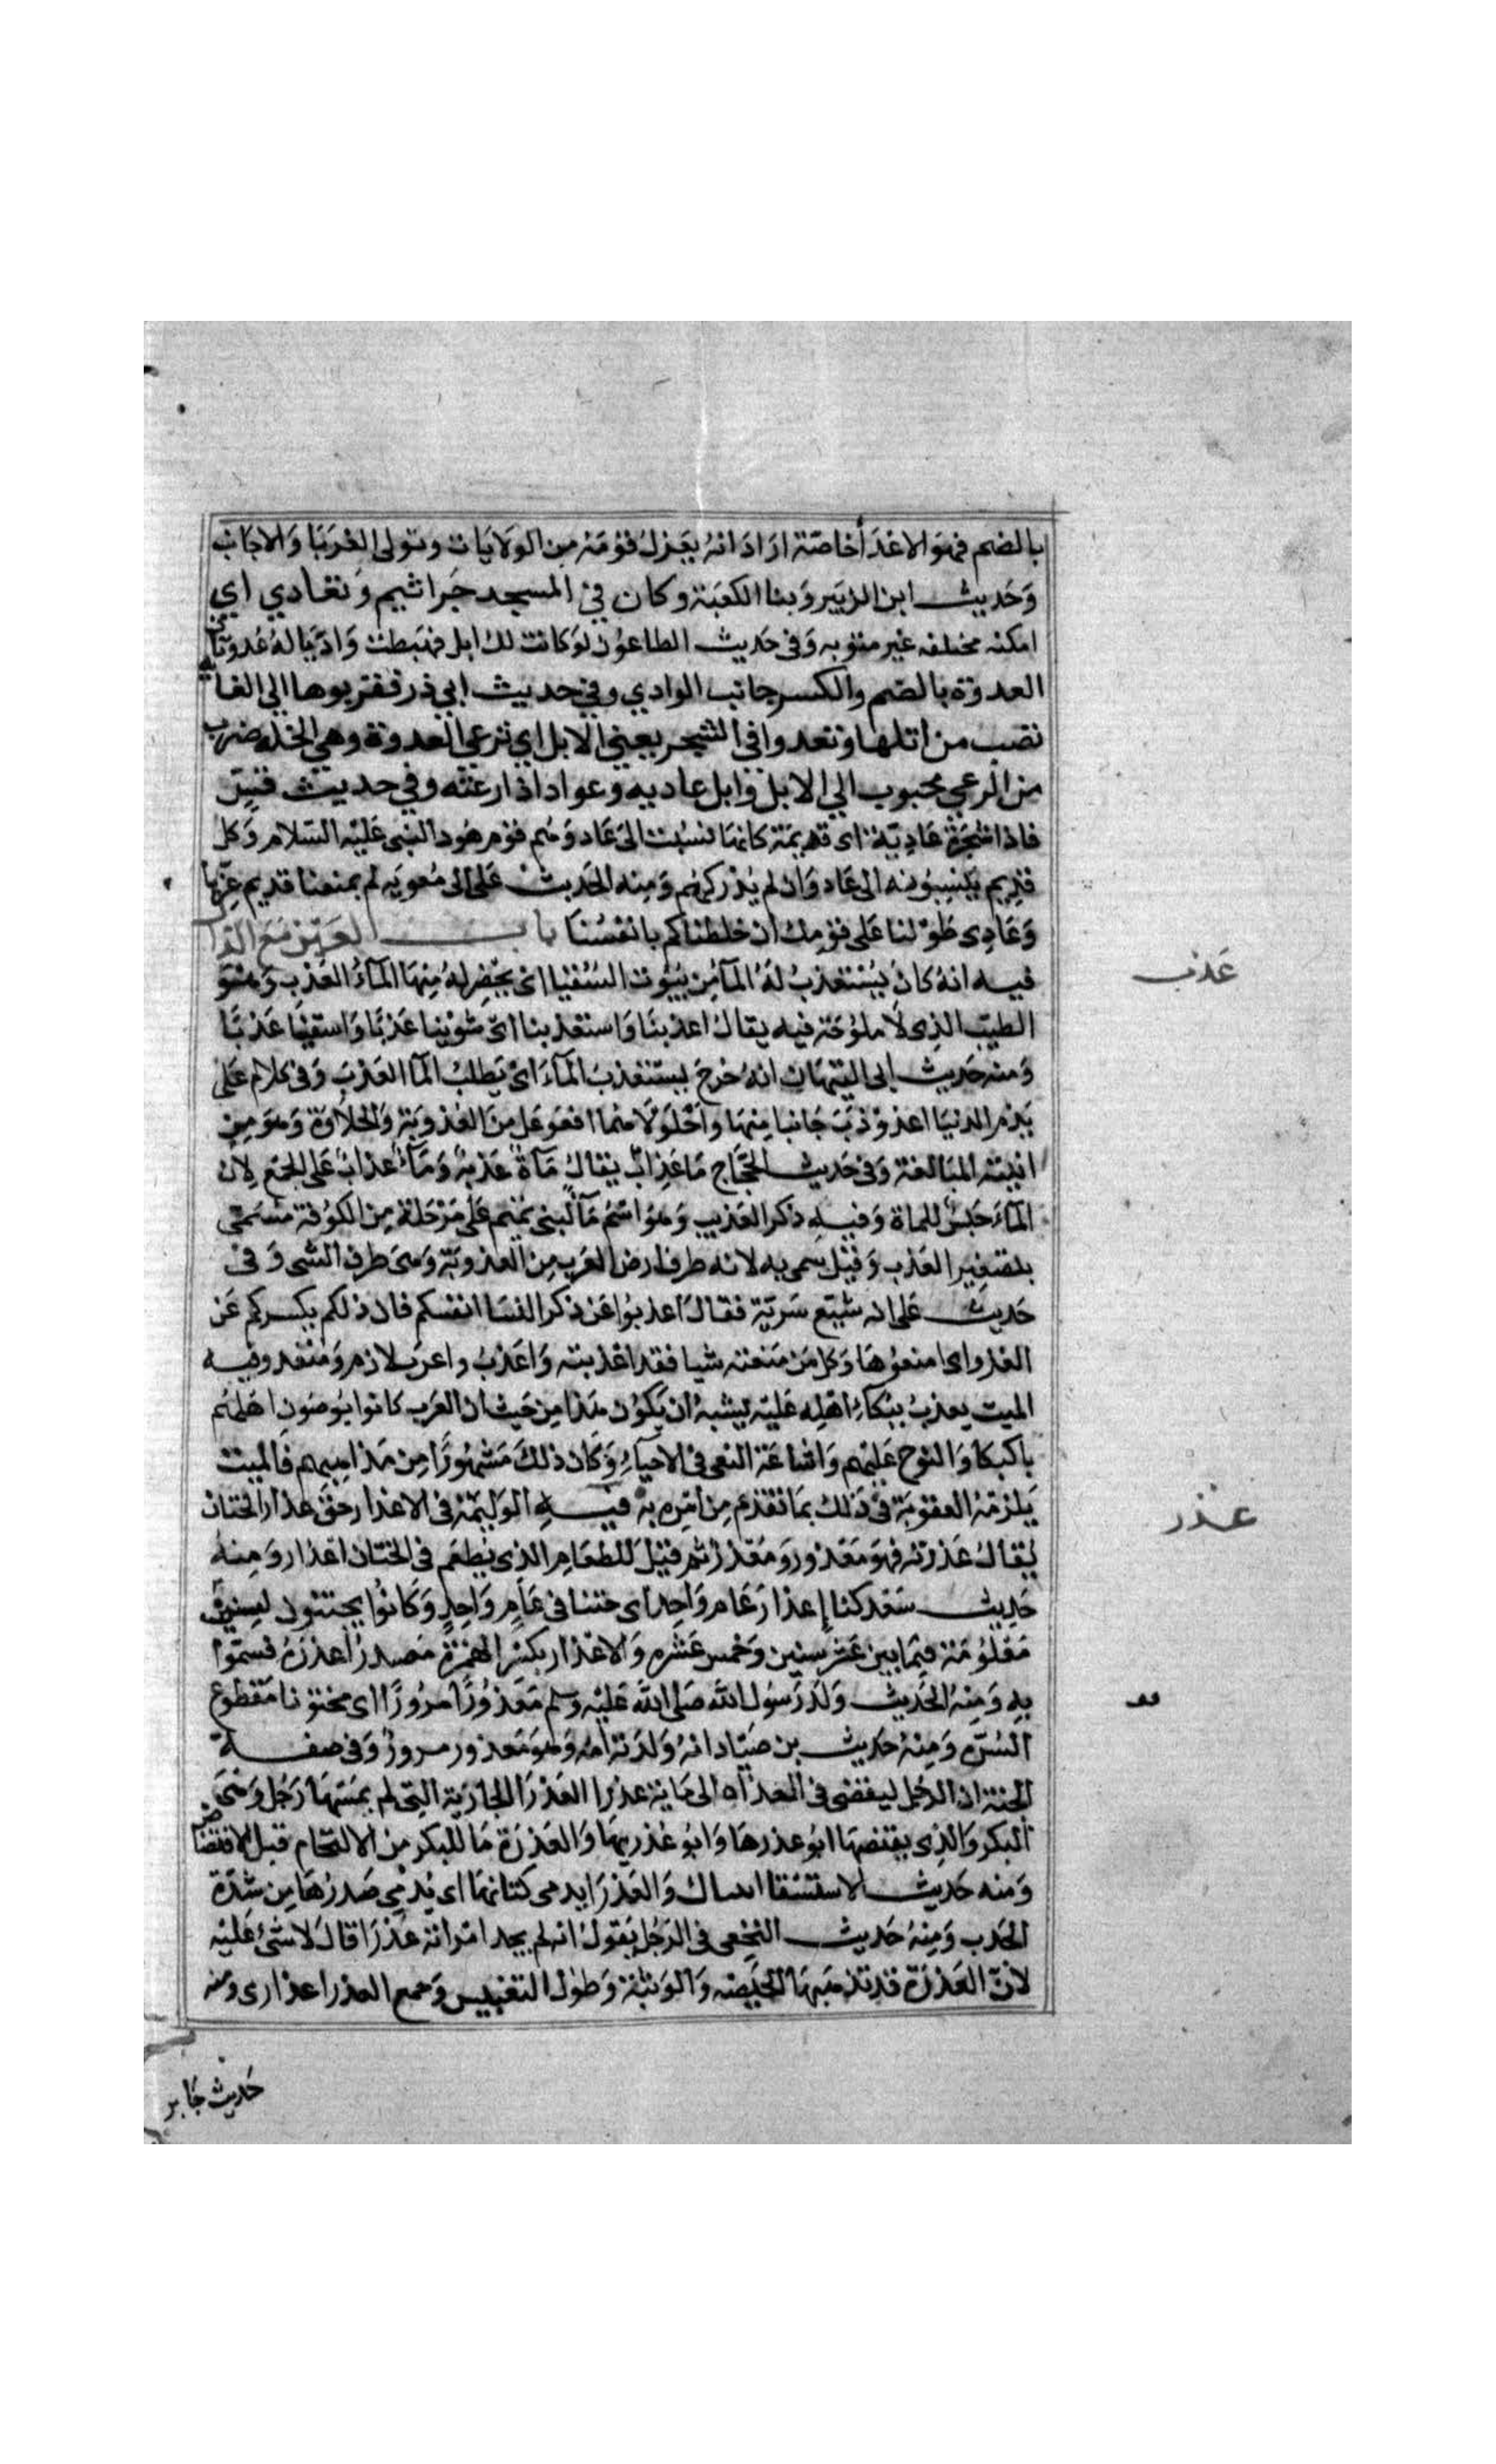 بالضم فهو الاعدَأ خاصّة ارَادَ انهُ يَعزلُ قومَهُ مِن الوَلايَات ويتولى الغُربَا وَالاجَانب
وَحَديث ابن الزبَير وَبنا الكعبَة وكان في المسجد جَراثيم وَتعَادي اي
امكنه مختلفه غير مستويه وَفى حَديث الطاعُون لوَ كانت لك ابل فهَبطت وَاديًا لهُ عُدوتان
العدوة بالضم والكسر جانب الوادي وفي حديث ابي ذر فقربوها الي الغابه
نصب من اثلها وتعدوا في الشجر يعني الابل اي ترعي العدوة وهي الخلة ضرب
من المرعي محبوب الي الابل وابل عاديه وعواد اذا رعته وفي حديث قس
فاذا شجَرة عَاديّة اى قديمَة كانهَا نسُبت الى عَاد وَهُم قوم هُود النبى عَليْه السّلام وَكل
قدِيم يَنسِبُونه الى عَاد وَان لم يُدْركهُم وَمِنه الحَديث عَلى الى مُعوية لم يمنعنا قديم عِزّنا
وَعَادِى طَوْلنا عَلى قوْمك ان خلطناكم بانفسُنا باب العَين مَعَ الذا
فيه انهُ كانَ يُسْتعذبُ لهُ المآ مِن بيُوت السُقيا اى يحْضر لهُ مِنهَا المآءُ العَذبُ وَهُوَ
الطيّب الذِى لَا مُلوُحَة فيه يقالُ اعذبنَا وَاستعذبنا اى شربْنا عَذبًا وَاستقيْنا عَذبًا
وَمنه حَديث ابى التيّهان انهُ خرجَ يستعذبُ المآءَ اى يَطلبُ المآ العَذبَ وَفى كلام عَلى
يَذم الدنيَا اعذوْذبَ جَانبا مِنهَا واحْلَولَا هُما افعَوعَل مِن العذوبَة وَالحلَاوَة وَهوَ مِن
ابنية المبَالغة وَفى حَديث الحَجَّاج مَا عَذابٌ يقالُ مَآةٌ عَذبةٌ وَمَآءٌ عذابٌ عَلى الجَمع لان
المآءَ جنسٌ للماة وَفيه ذكر العُذيب وَهوُ اسمُ مَآءٍ لبنى تميْم عَلى مَرْحَلة مِن الكوُفة مُسَمّى
بتصغير العَذب وَقيْل سمى به لانه طرف ارض العَرب مِن العذوبَة وَهىَ طرف الشى وَفى
حَديث عَلى انه شيّع سَريّة فقالَ اعذبوُا عَن ذكر النسَا انفسكم فان ذلكم يكسركم عَن
الغزو اى امنعوُهَا وَكل مَن مَنعته شيا فقد اعذبته وَاعذبُ واعرب لازم وَمُتعد وفيه
الميت يعذبُ ببُكاءِ اهْلِه عَليه يشبهُ ان يكوُن هَذا مِن حَيث ان العَرب كانوا يُوصون اهْلهُم
بالبكا وَالنوح عَليْهم وَاشاعَة النعى فى الاحيَآء وَكان ذلكَ مَشهُورًا مِن مَذاهِبهم فالميت
يَلزمُهُ العقوبَة فى ذلك بمَا تقدّم مِن امْره به فيه الوَليمَة فى الاعذار حَق عذار الختان
يُقالُ عَذرته فهوَ مَعذور وَمُعذر ثم قيْل للطعَام الذى يُطعَم فى الختان اعذار وَمِنهُ
حَديث سَعْد كنا إعذارَ عَام وَاحِد اى ختنا فى عَامٍ وَاحِدٍ وَكانوُا يختنون لسِنين
مَعْلوُمَة فيمَا بين عَشر سِنين وَخمس عَشره وَالاعْذار بكسْر الهَمزة مَصدرُ اعذرَهُ فسَمّوْا
بِهِ وَمِنهُ الحَديث وَلدَ رَسوُل الله صَلى الله عَليْه وسلم مَعذوُرًا مسرُورًا اى مختونا مَقطوع
السُرّه وَمِنهُ حَديث بن صَيّاد انهُ وَلدَته امه وَهوَ مَعذور مسرورٌ وَفى صفة
الجنة ان الرجُل ليفضى فى الغداه الى مَاية عذرا العَذرَا الجَاريَة التى لم يمسّهَا رَجُل وَهىَ
البكر وَالذِى يفتضهَا ابوُ عذرهَا وَابوُ عُذرتهَا وَالعُذرَة مَا للبكر من الالتحام قبل الافتضاض
وَمنه حَديث الاستسْقا اتيناك وَالعَذرَا يدمى لبَانهَا اى يَدْمى صَدرُهَا مِن شدّة
الجَدب وَمِنهُ حَديث النخعى فى الرَجُل يَقولُ انه لم يجد امْراته عَذرَا قالَ لا شئ عَليْه
لانّ العُذرَة قد تذهبهَا الحَيضَه وَالوَثبَة وَطولُ التعْنيس وَجمع العذرا عذارى ومنه
حَديث جَابر
عَذب
عذر